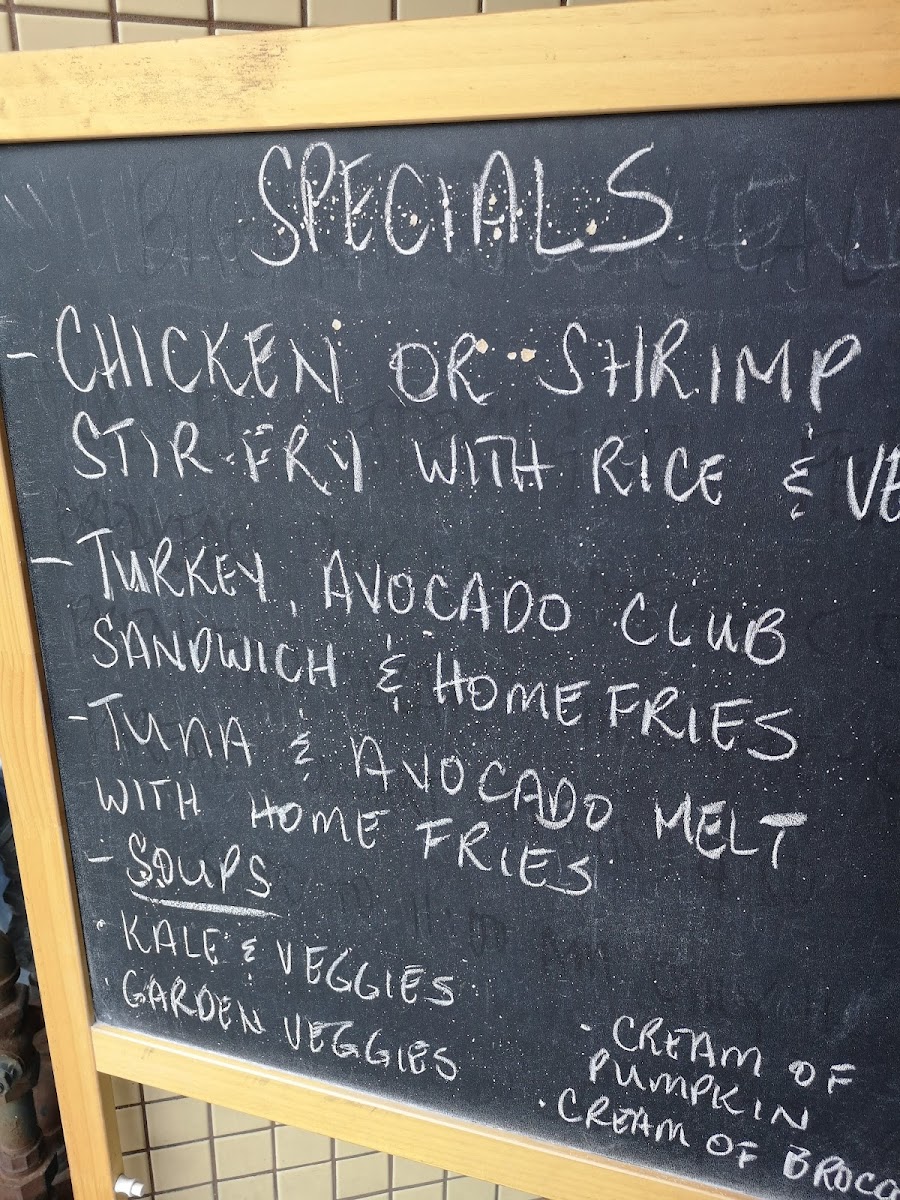 SPECIALS
- CHICKEN OR SHRIMP
STIR-FRY WITH RICE & VE
- TURKEY, AVOCADO CLUB
SANDWICH & HOME FRIES
- TUNA & AVOCADO MELT
WITH HOME FRIES
- SOUPS
· KALE & VEGGIES
· GARDEN VEGGIES
· CREAM OF
PUMPKIN
· CREAM OF BROCO